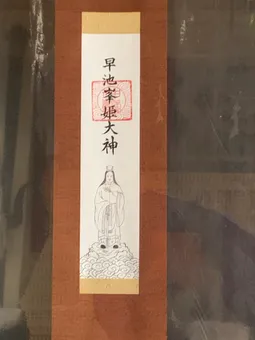 早池峯姫大神